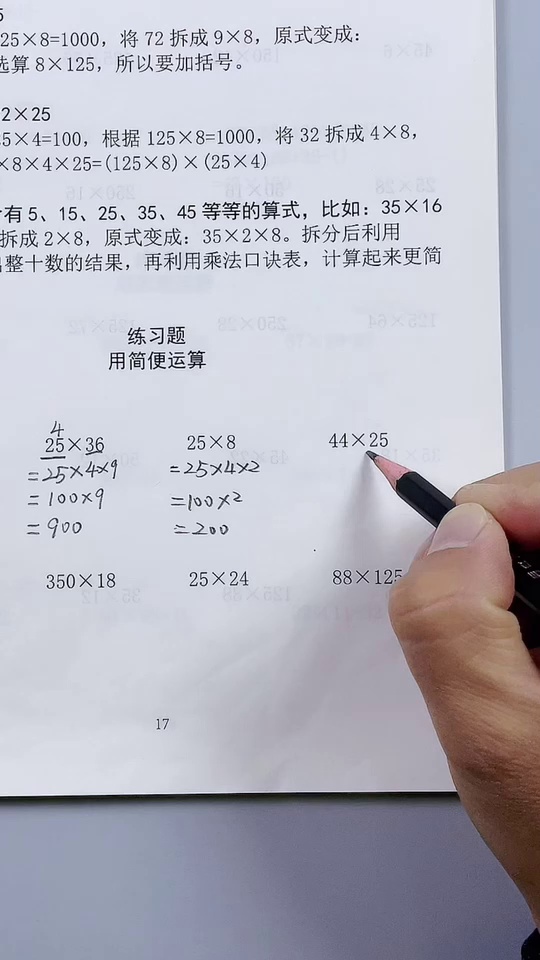 5
25×8=1000，将 72 拆成 9×8，原式变成：
选算 8×125，所以要加括号。
2×25
25×4=100，根据 125×8=1000，将 32 拆成 4×8，
×8×4×25=(125×8)×(25×4)
有 5、15、25、35、45 等等的算式，比如：35×16
拆成 2×8，原式变成：35×2×8。拆分后利用
整十数的结果，再利用乘法口诀表，计算起来更简
练习题
用简便运算
4
25×36
=25×4×9
=100×9
=900
25×8
=25×4×2
=100×2
=200
44×25
350×18
25×24
88×125
17